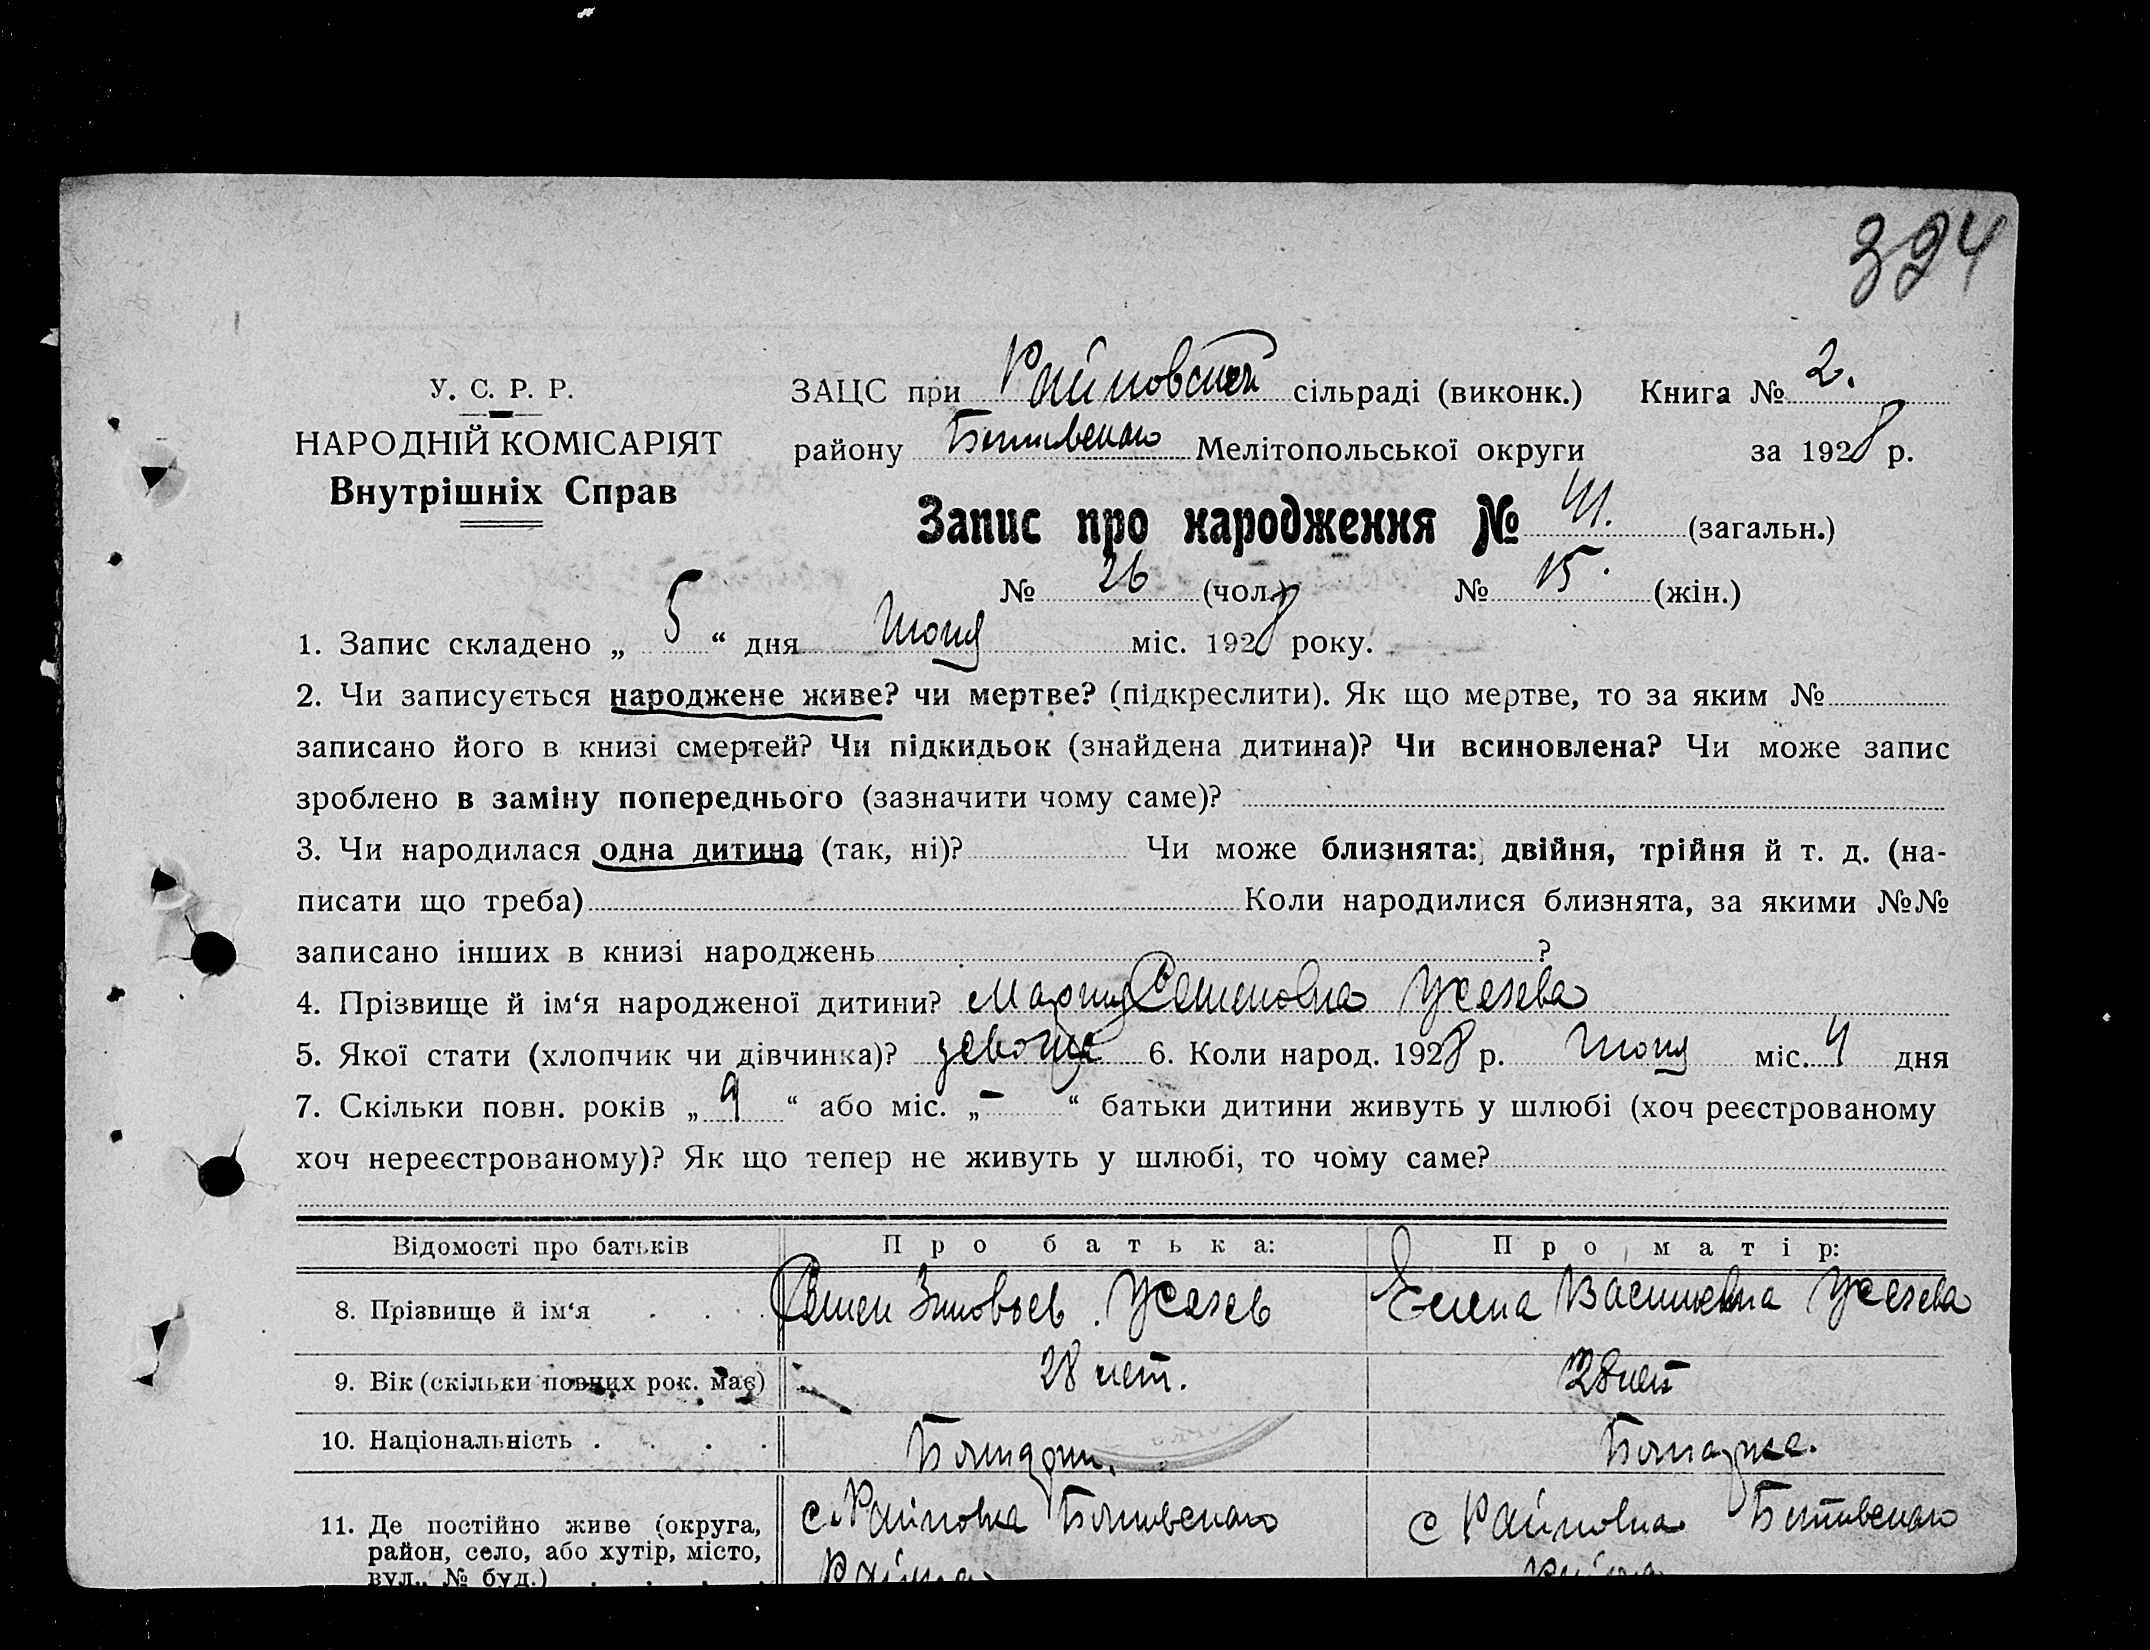 394
У. С. Р. Р.
НАРОДНІЙ КОМІСАРІЯТ
Внутрішніх Справ
ЗАЦС при Райновской сільраді (виконк.) Книга № 2.
району Ботивского Мелітопольської округи за 1928 р.
Запис про народження № 41. (загальн.)
№ 26 (чол.) № 15. (жін.)
1. Запис складено „ 5 “ дня Июня міс. 1928 року.
2. Чи записується народжене живе? чи мертве? (підкреслити). Як що мертве, то за яким №
записано його в книзі смертей? Чи підкидьок (знайдена дитина)? Чи всиновлена? Чи може запис
зроблено в заміну попереднього (зазначити чому саме)?
3. Чи народилася одна дитина (так, ні)? Чи може близнята: двійня, трійня й т. д. (на-
писати що треба) Коли народилися близнята, за якими №№
записано інших в книзі народжень ?
4. Прізвище й ім‘я народженої дитини? Мария Семеновна
5. Якої стати (хлопчик чи дівчинка)? 6. Коли народ. 1928 р. Июня міс. 4 дня
7. Скільки повн. років „ 9 “ або міс. „ – “ батьки дитини живуть у шлюбі (хоч реєстрованому
хоч нереєстрованому)? Як що тепер не живуть у шлюбі, то чому саме?
Відомості про батьків Про батька: Про матір:
8. Прізвище й ім‘я Семен Зиновьев. Елена Васильевна
9. Вік (скільки повних рок. має) 28 лет. 28 лет
10. Національність Болгарин. Болгарка.
11. Де постійно живе (округа,
район, село, або хутір, місто,
вул., № буд.)
с. Райновка Ботивского
Района
с Райновка Ботивского